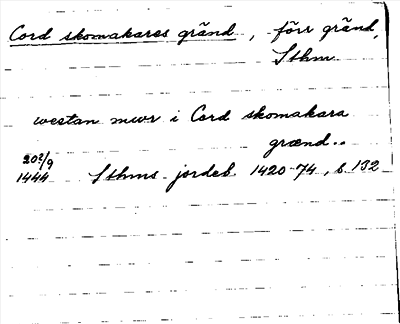 Cord skomakares gränd, förr gränd,
Sthm.
westan mwr i Cord skomakara
grænd..
20?/9
1444 Sthms jordeb. 1420-74, s. 132